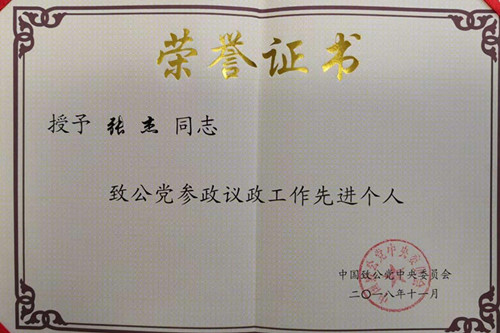 荣誉证书
授予 张杰 同志
致公党参政议政工作先进个人
中国致公党中央委员会
二〇一八年十一月